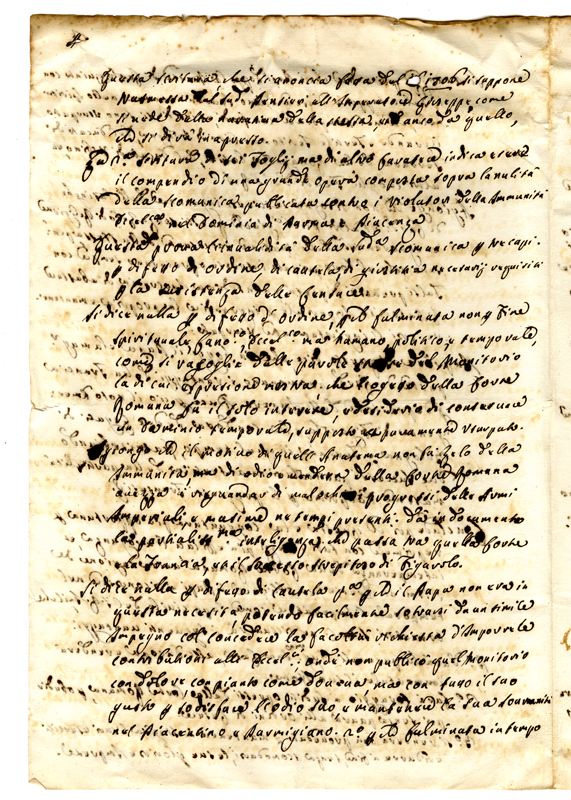 Questa scrittura che si annoncia fatta del 1708 si suppone
trasmessa dal Sud. Pontino all Imperatore Giuseppe come
si vede dalla narrativa della stessa, ed anco da quello,
che si dirà in apresso.
scrittura di sei fogli ma di altro carattere indica essere
il compendio di una grande opera composta sopra la nullità
della scomunica publicata contro i violatori della Immunità
Eccl.ca nel Dominio di Parma e Piacenza
Questa prova l'invalidità della sud.a scomunica p tre capi.
p difetto di ordine, di cautela di giustitia necessarij requisiti
p la sussistenza delle censure.
Si dice nulla p difetto d'ordine, p.che fulminata non p fine
spirituale, Eccl.co ma humano politico, e temporale,
come si raccoglie dalle parole del Monitorio
la di cui espressione mostra, che il oggetto della Corte
Romana fu il solo interesse, e desiderio di conservare
un dominio temporale, supposto usurpato.
Aggionge che il motivo di quelle Anatema non fu zelo della
Immunità, ma di odio della Corte Romana
avezza a riguardar di mal occhio i progressi delle Armi
Imperiali, e massime ne tempi presenti. Dà in documento
la partialiss.ma inteligenza che passa tra quella Corte
e la Francia, ed il successo strepitoso di Figarolo.
Si dice nulla p difetto di cautela p.mo p.che il Papa non era in
questa necessità, potendo facilmente sotrarsi da un simile
Impegno col' concedere la facoltà richiesta d'Imporre le
contributioni alli Eccl.ci; onde non publicò quel Monitorio
con dolore e con pianto come doveva, ma con tutto il suo
gusto p sodisfare l'odio suo e mantenere la sua sovranità
nel Piacentino, e Parmigiano. 2.o p.che fulminata in tempo